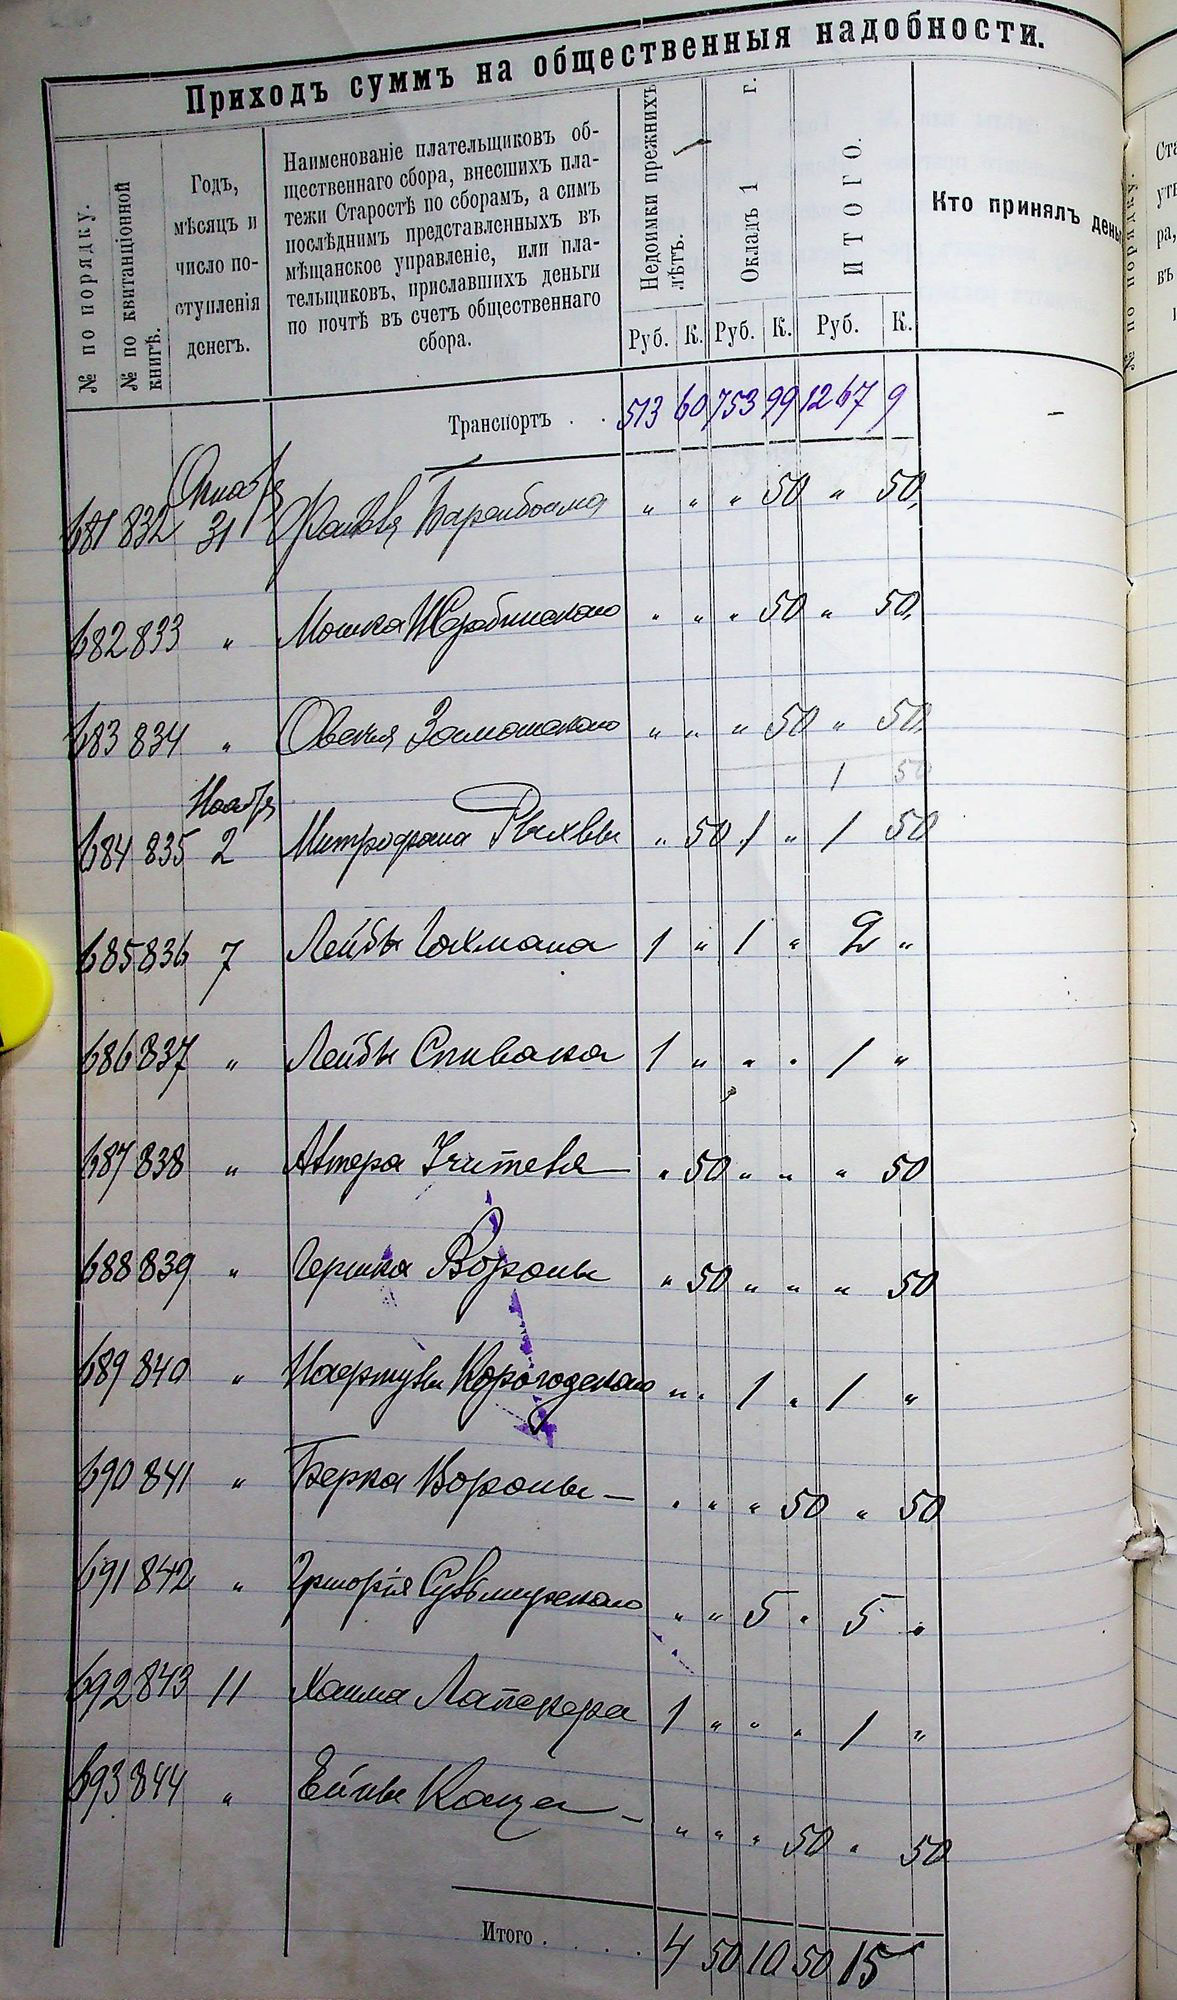 Приходъ суммъ на общественныя надобности.
№ по порядку.
№ по квитанціонной
книгѣ.
Годъ,
мѣсяцъ и
число по-
ступленія
денегъ.
Наименованіе плательщиковъ об-
щественнаго сбора, внесшихъ пла-
тежи Старостѣ по сборамъ, а симъ
послѣднимъ представленныхъ въ
мѣщанское управленіе, или пла-
тельщиковъ, приславшихъ деньги
по почтѣ въ счетъ общественнаго
сбора.
Недоимки прежнихъ
лѣтъ.
Окладъ 1 г.
ИТОГО.
Кто принялъ день
Руб. К. Руб. К. Руб. К.
Транспортъ . . 513 60 753 99 1267 9 –
Октября
681 832 31 " " " 50 " 50
682 833 " Мошка " " " 50 " 50
683 834 " Овсея " " " 50 " 50
1 50
Ноября
684 835 2 Митрофана " 50 1 " 1 50
685 836 7 Лейбы Гохмана 1 " 1 " 2 "
686 837 " Лейбы Спивака 1 " " " 1 "
687 838 " Учителя " 50 " " " 50
688 839 " Гершка Вороны " 50 " " " 50
689 840 " Корогодскаго " " 1 " 1 "
690 841 " Берка Вороны – " " " 50 " 50
691 842 " Григорія " " 5 " 5 "
692 843 11 Хаима 1 " " " 1 "
693 844 " Каца – " " " 50 " 50
Итого . . . . 4 50 10 50 15